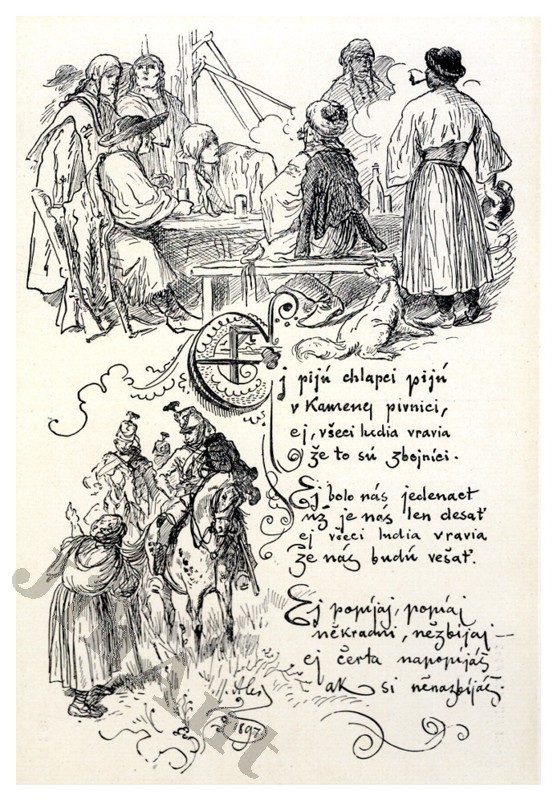 Ej pijú chlapci pijú
v Kamenej pivnici,
ej, všeci ludia vravia
že to sú zbojníci.
Ej bolo nás jedenact
už je nás len desať
ej všeci ludia vravia
že nás budú vešať.
Ej popíjaj, popíaj
někradni, nězbíjaj —
ej čerta napopíjáš
ak si něnazbíjáš.
1897